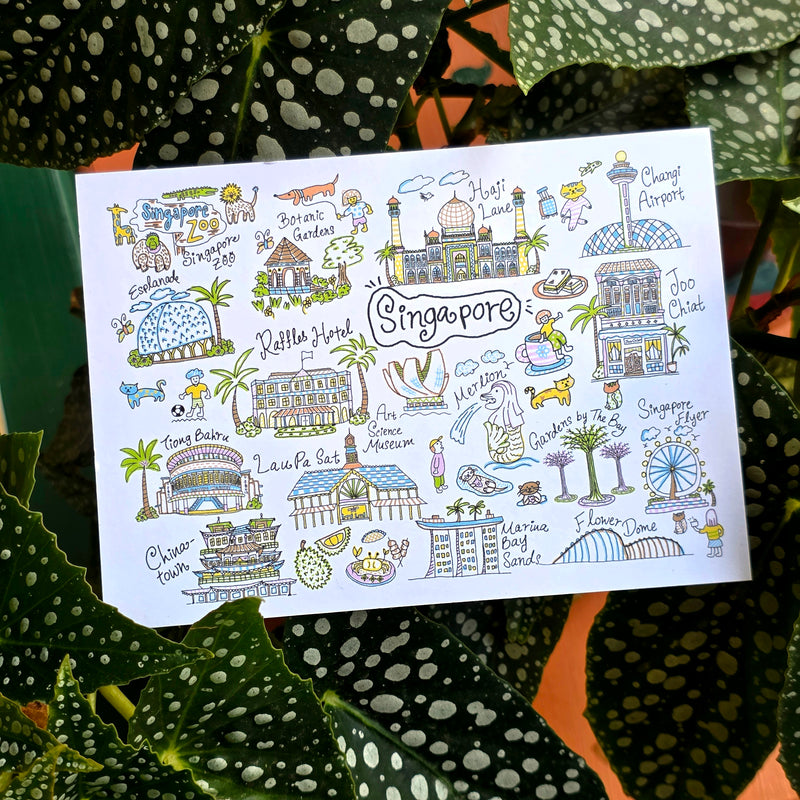 Singapore
Zoo
Singapore
Zoo
Botanic
Gardens
Haji
Lane
Changi
Airport
Esplanade
Singapore
Joo
Chiat
Raffles Hotel
Art
Science
Museum
Merlion
Gardens by The Bay
Singapore
Flyer
Tiong Bahru
Lau Pa Sat
China-
town
Marina
Bay
Sands
Flower Dome